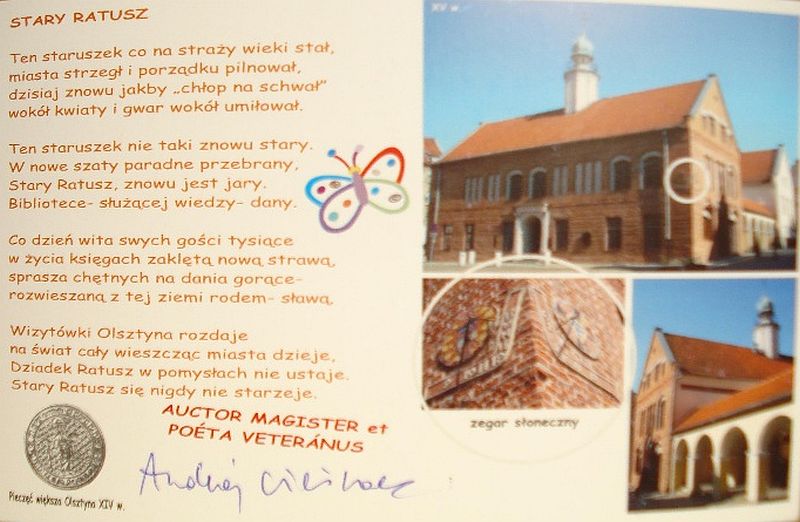 STARY RATUSZ
Ten staruszek co na straży wieki stał,
miasta strzegł i porządku pilnował,
dzisiaj znowu jakby „chłop na schwał”
wokół kwiaty i gwar wokół umiłował.
Ten staruszek nie taki znowu stary.
W nowe szaty paradne przebrany,
Stary Ratusz, znowu jest jary.
Bibliotece- służącej wiedzy- dany.
Co dzień wita swych gości tysiące
w życia księgach zaklętą nową strawą,
sprasza chętnych na dania gorące-
rozwieszaną z tej ziemi rodem- sławą,
Wizytówki Olsztyna rozdaje
na świat cały wieszcząc miasta dzieje,
Dziadek Ratusz w pomysłach nie ustaje.
Stary Ratusz się nigdy nie starzeje.
AUCTOR MAGISTER et
POÉTA VETERÁNUS
Andrzej
Pieczęć większa Olsztyna XIV w.
XV w.
zegar słoneczny